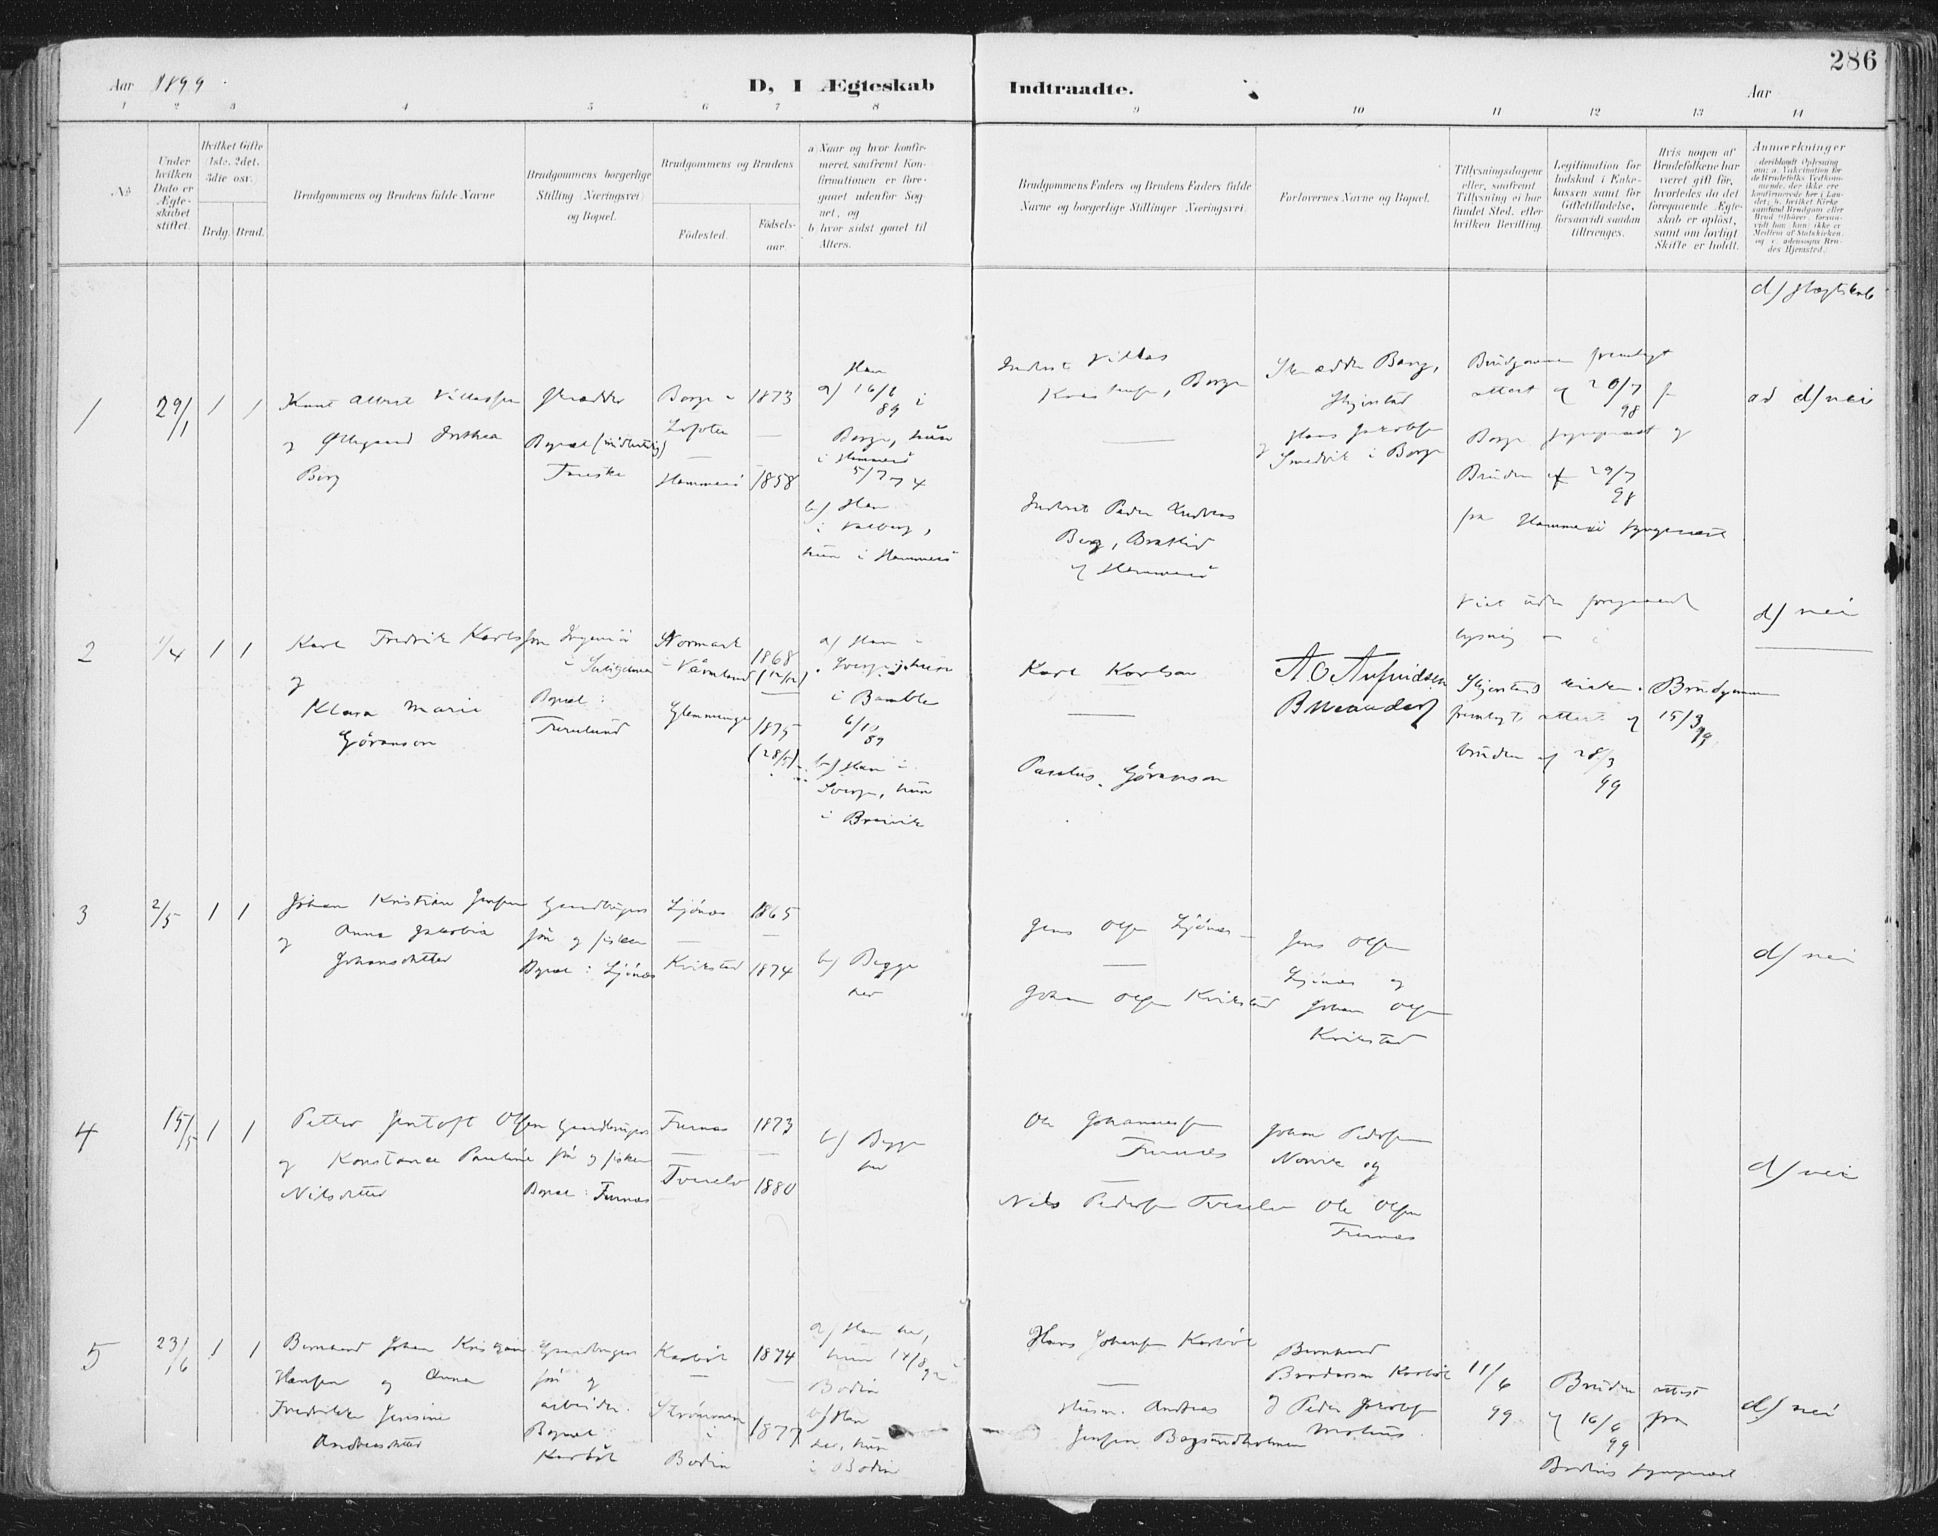 286
Aar 1899.
D, I Ægteskab Indtraadte.
Aar
1 2 3 4 5 6 7 8 9 10 11 12 13 14
No.
Under hvilken Dato er Ægteskabet stiftet.
Hvilket Gifte (1ste, 2det, 3die osv.)
Brdg. Brud.
Brudgommens og Brudens fulde Navne
Brudgommens borgerlige Stilling (Næringsvei) og Bopæl.
Brudgommens og Brudens
Fødested.
Fødselsaar.
a Naar og hvor konfirmeret, saafremt Konfirmationen er foregaaet udenfor Sognet, og
b hvor sidst gaaet til Alters.
Brudgommens Faders og Brudens Faders fulde Navne og borgerlige Stillinger (Næringsvei).
Forlovernes Navne og Bopæl.
Tillysningsdagene eller, saafremt Tillysning ei har fundet Sted, efter hvilken Bevilling.
Legitimation for Indskud i Enkekassen samt for Giftetilladelse, forsaavidt saadan tiltrænges.
Hvis nogen af Brudefolkene har været gift før, hvorledes da det foregaaende Ægteskab er opløst, samt om lovligt Skifte er holdt.
Anmærkninger
d) slægtskab
1
29/1
1 1
Knut Albert Villassen
og Ollegaard Anthea
Berg
Skrædder
Bopæl (midlertidig)
Fauske
Borge i
Lofoten
Hammerø
1873
1858
Han
a) 16/6 89 i
Borge, hun
i Hammerø
5/7 74
b) Han
i Valberg,
hun i Hammerø
Inderst Villas
Borge
Inderst Peder Andreas
Berg,
af Hammerø
Skrædder Berg,
og Hans Jakobsen
Smedvik i Borge
Brudgommen fremlagt
attest af 20/7 98 fra
Borge sogneprest og
Bruden af 29/7 98
fra Hammerø sogneprest
ad d) nei
2
1/4
1 1
Karl Fredrik Karlsson
og
Klara Marie
Göranson
Ingeniør
i Sulitjelma
Bopæl:
Furulund
Normark
i Värmland
Glemminge
1868
(12/12)
1875
(28/5)
a) Han i
Sverige, hun
i Bamble
b) Han i
Sverige, hun
i Brevik
Karl Karlson
Paulus Göranson
A O Anfindsen
B Neander
Viet uden foregaaende
lysning i
Skjerstad kirke. Brudgommen
fremlagt attest af 15/3 99
bruden af 28/3 99
d) nei
3
2/5
1 1
Johan Kristian Jensen
og Anna Jakobia
Johansdatter
Gaardbrugers
søn og fisker
Bopæl: Ljønes
Ljønes
Kvikstad
1865
1874
b) Begge
her
Jens Olsen Ljønes
Johan Olsen Kvikstad
Jens Olsen
Ljønes og
Johan Olsen
Kvikstad
d) nei
4
15/5
1 1
Petter Jentoft Olsen
og Konstance Pauline
Nilsdatter
Gaardbrugers
søn og fisker
Bopæl: Furnæs
Furnæs
Tverelv
1873
1880
b) Begge
her
Ole Johannessen
Furnæs
Nils Pedersen Tverelv
Johan Pedersen
Norvik og
Ole Olsen
Furnæs
d) nei
5
23/6
1 1
Bernhard Johan Kristian
Hansen og Anna
Fredrikke Jensine
Andreasdatter
Gaardbrugers
søn og
arbeider.
Bopæl:
Karbøl
Karbøl
Strømmen
i
Bodin
1874
1877
a) Han her,
hun 14/8 92 i
Bodin
b) Han
her, hun
i Bodin
Hans Johansen Karbøl
Husm. Andreas
Jensen
Bernhard
Brodersen Karbøl
og Peder Jakobsen
11/6
99
Bruden attest
af 16/6 99 fra
Bodins sogneprest
d) nei